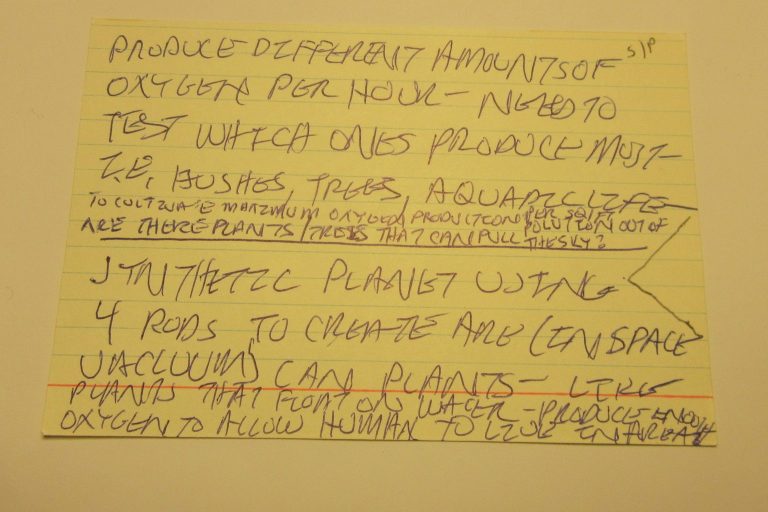 S/P
PRODUCE DIFFERENT AMOUNTS OF
OXYGEN PER HOUR - NEED TO
TEST WHICH ONES PRODUCE MOST -
I.E, BUSHES, TREES, AQUATIC LIFE
TO CULTIVATE MAXIMUM OXYGEN PRODUCTION PER SQ FT
ARE THERE PLANTS/TREES THAT CAN PULL POLUTION OUT OF THE SKY?
SYNTHETIC PLANET USING
4 RODS TO CREATE ARE (IN SPACE
VACUUM) CAN PLANTS - LIKE
PLANTS THAT FLOAT ON WATER - PRODUCE ENOUGH
OXYGEN TO ALLOW HUMAN TO LIVE IN AREA